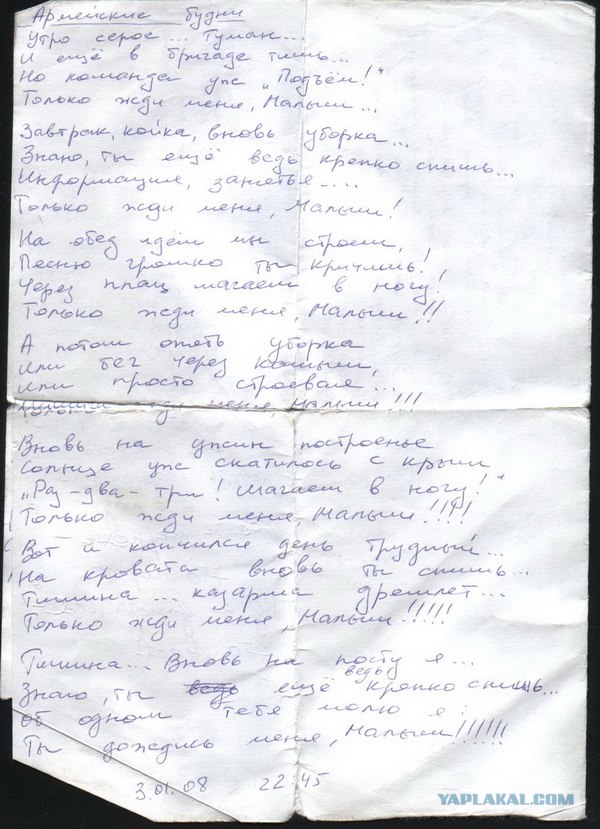 Армейские будни
Утро серое... Туман...
И ещё в бригаде тишь...
Но команда уж „Подъём!"
Только жди меня, Малыш...
Завтрак, койка, вновь уборка...
Знаю, ты ещё ведь крепко спишь...
Информация, занятья....
Только жди меня, Малыш!
На обед идём мы строем,
Песню громко ты кричишь!
Через плац шагаем в ногу!
Только жди меня, Малыш!!
А потом опять уборка
Или бег через камыши,
Или просто строевая...
Только жди меня, Малыш!!!
Вновь на ужин построенье
Солнце уж скатилось с крыш
„Раз-два-три! Шагаем в ногу!"
Только жди меня, Малыш!!!!
Вот и кончился день трудный...
На кровати вновь ты спишь...
Тишина... казарма дремлет...
Только жди меня, Малыш!!!!!
Тишина... Вновь на посту я...
Знаю, ты ещё ведь крепко спишь...
Об одном тебя молю я:
Ты дождись меня, Малыш!!!!!!
3.01.08 22:45
YAPLAKAL.COM